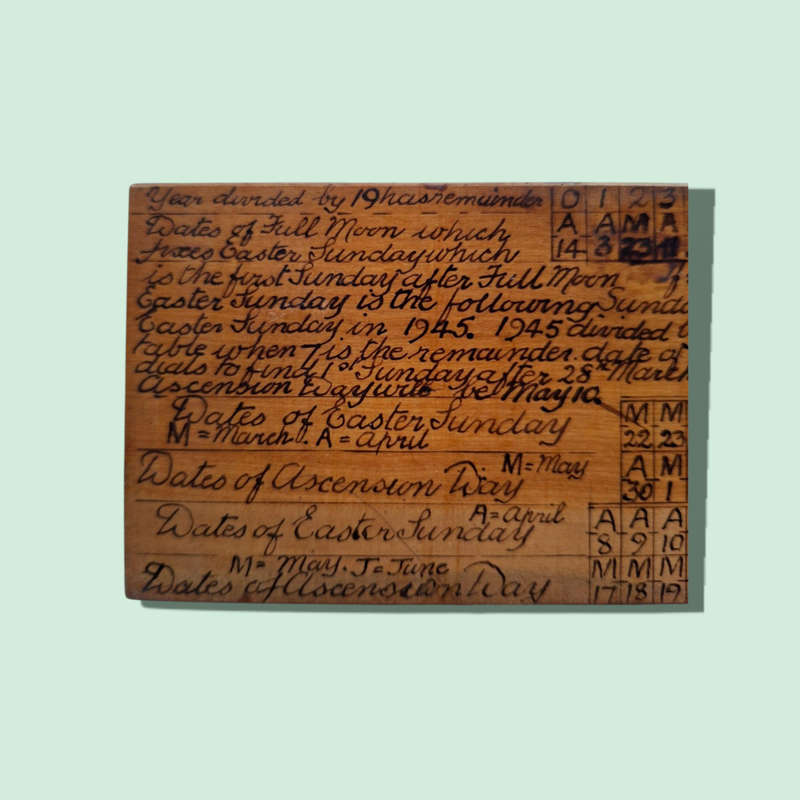 Year divided by 19 has remainder 0 1 2 3
Dates of Full Moon which A A M A
Fixes Easter Sunday which 14 3 23
is the first Sunday after Full Moon
Easter Sunday is the following Sunda
Easter Sunday in 1945. 1945 divided
table when 7 is the remainder. date of
dials to find 1st Sunday after 28th March
Ascension Day will be May 10.
Dates of Easter Sunday M M
M = March. A = April 22 23
M = May A M
Dates of Ascension Day 30 1
A = April A A A
Dates of Easter Sunday 8 9 10
M = May. J = June M M M
Dates of Ascension Day 17 18 19